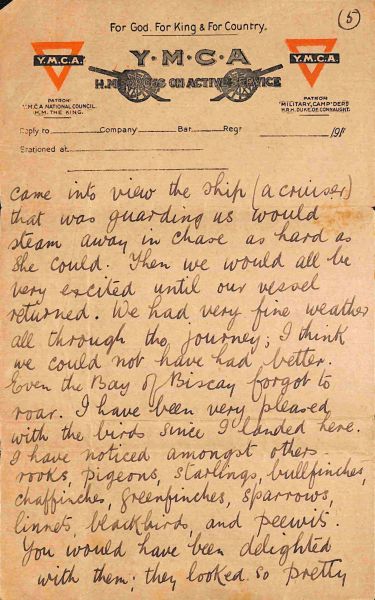 For God. For King & For Country.
(5)
Y.M.C.A.
Y·M·C·A
Y.M.C.A.
H.M. FORCES ON ACTIVE SERVICE
PATRON
Y.M.C.A NATIONAL COUNCIL.
H.M. THE KING.
PATRON
"MILITARY CAMP" DEPT
H.R.H. DUKE OF CONNAUGHT.
Reply to Company Bat. Regt 191
Stationed at
came into view the ship (a cruiser)
that was guarding us would
steam away in chase as hard as
she could. Then we would all be
very excited until our vessel
returned. We had very fine weather
all through the journey; I think
we could not have had better.
Even the Bay of Biscay forgot to
roar. I have been very pleased
with the birds since I landed here.
I have noticed amongst others
rooks, pigeons, starlings, bullfinches,
chaffinches, greenfinches, sparrows,
linnets, blackbirds, and peewits.
You would have been delighted
with them; they looked so pretty